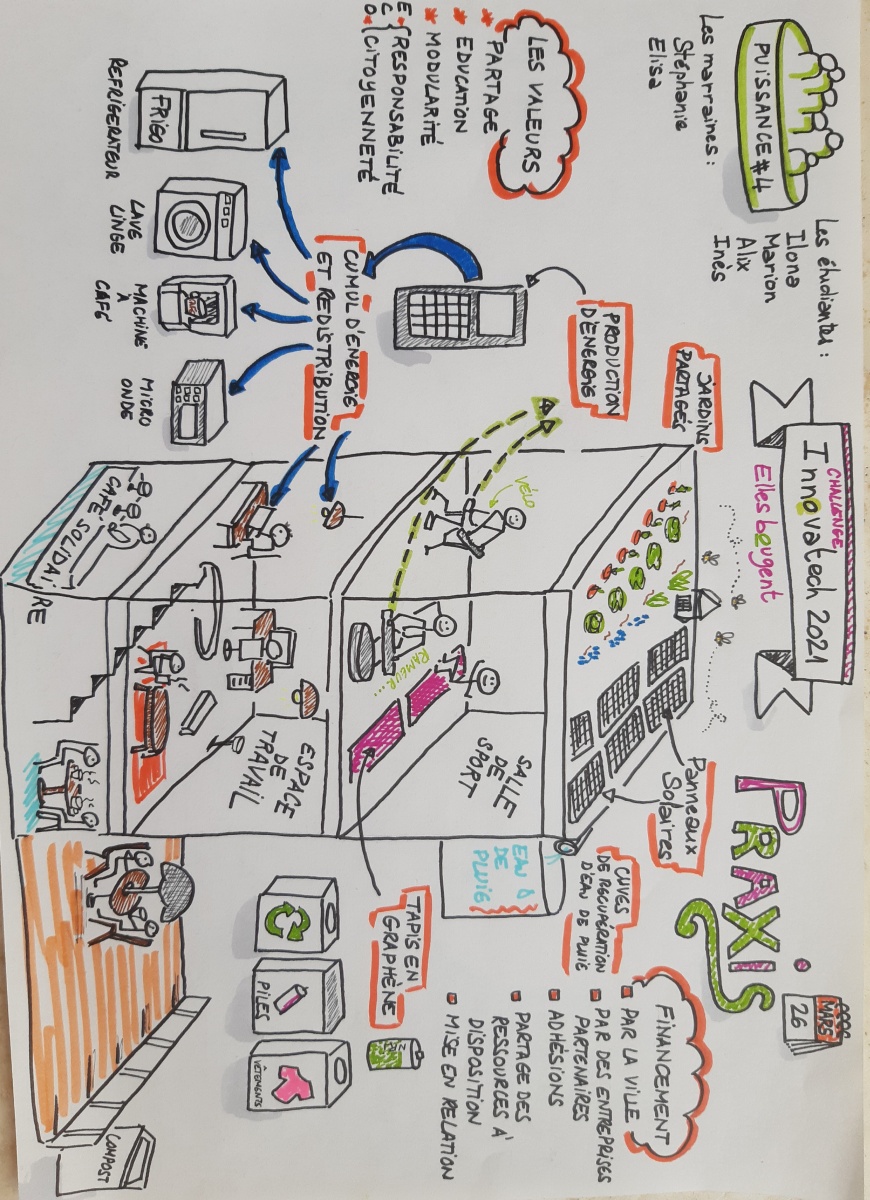 PUISSANCE #4
Les marraines :
Stéphanie
Elisa
Les étudiantes :
Ilona
Marion
Alix
Inès
CHALLENGE
Innovatech 2021
Elles bougent
PRAXIS
MARS
26
LES VALEURS
PARTAGE
EDUCATION
MODULARITÉ
ECO
RESPONSABILITÉ
CITOYENNETÉ
PRODUCTION
D'ENERGIE
JARDINS
PARTAGÉS
Panneaux
Solaires
CUVES
DE RECUPÉRATION
D'EAU DE PLUIE
EAU
DE
PLUIE
FINANCEMENT
PAR LA VILLE
PAR DES ENTREPRISES
PARTENAIRES
ADHÉSIONS
PARTAGE DES
RESSOURCES À
DISPOSITION
MISE EN RELATION
CUMUL D'ENERGIE
ET REDISTRIBUTION
FRIGO
REFRIGERATEUR
LAVE
LINGE
MACHINE
À
CAFÉ
MICRO
ONDE
VÉLO
RAMEUR...
SALLE
DE
SPORT
TAPIS EN
GRAPHÈNE
ESPACE
DE
TRAVAIL
CAFÉ SOLIDAIRE
PILES
VÊTEMENTS
COMPOST